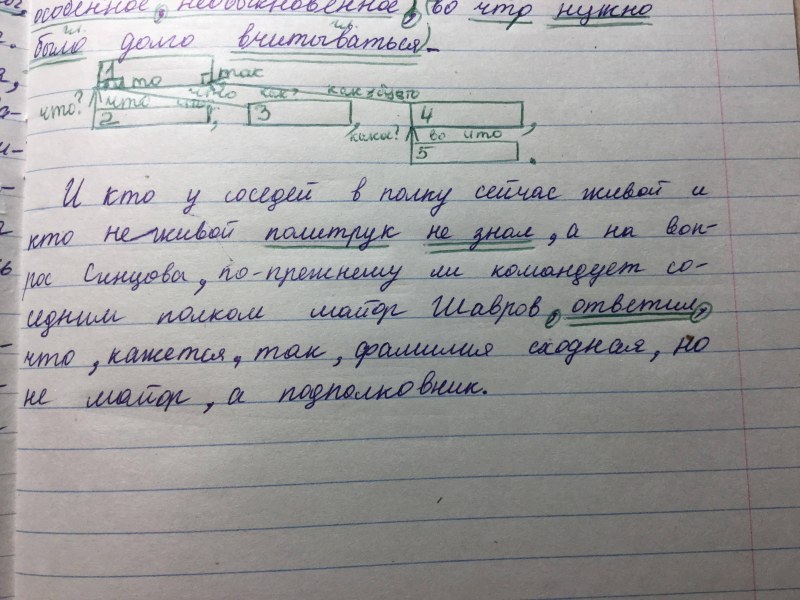 особенное, необыкновенное, (во что нужно
гл. гл.
было долго вчитываться).
1 то так
что? что как? как будто
что
2, 3, 4,
какое? во что
5.
И кто у соседей в полку сейчас живой и
кто неживой политрук не знал, а на воп-
рос Синцова, по-прежнему ли командует со-
седним полком майор Шавров, ответил,
что, кажется, так, фамилия сходная, но
не майор, а подполковник.